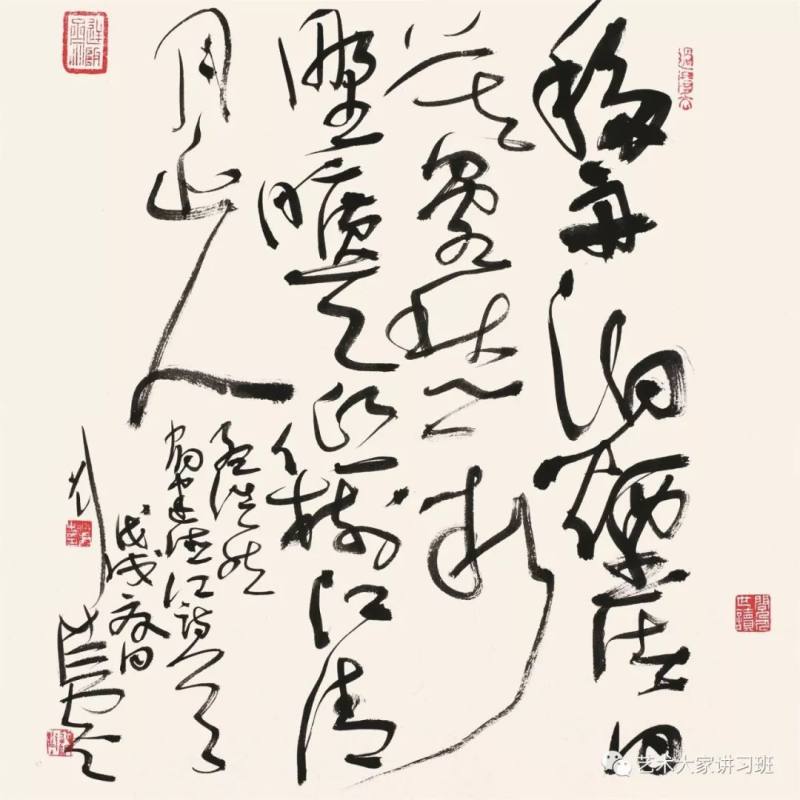 移舟泊煙渚日
莫客愁新
野曠天低樹江清
月近人
孟浩然
宿建德江詩一首
戊戌夏日
艺术大家讲习班